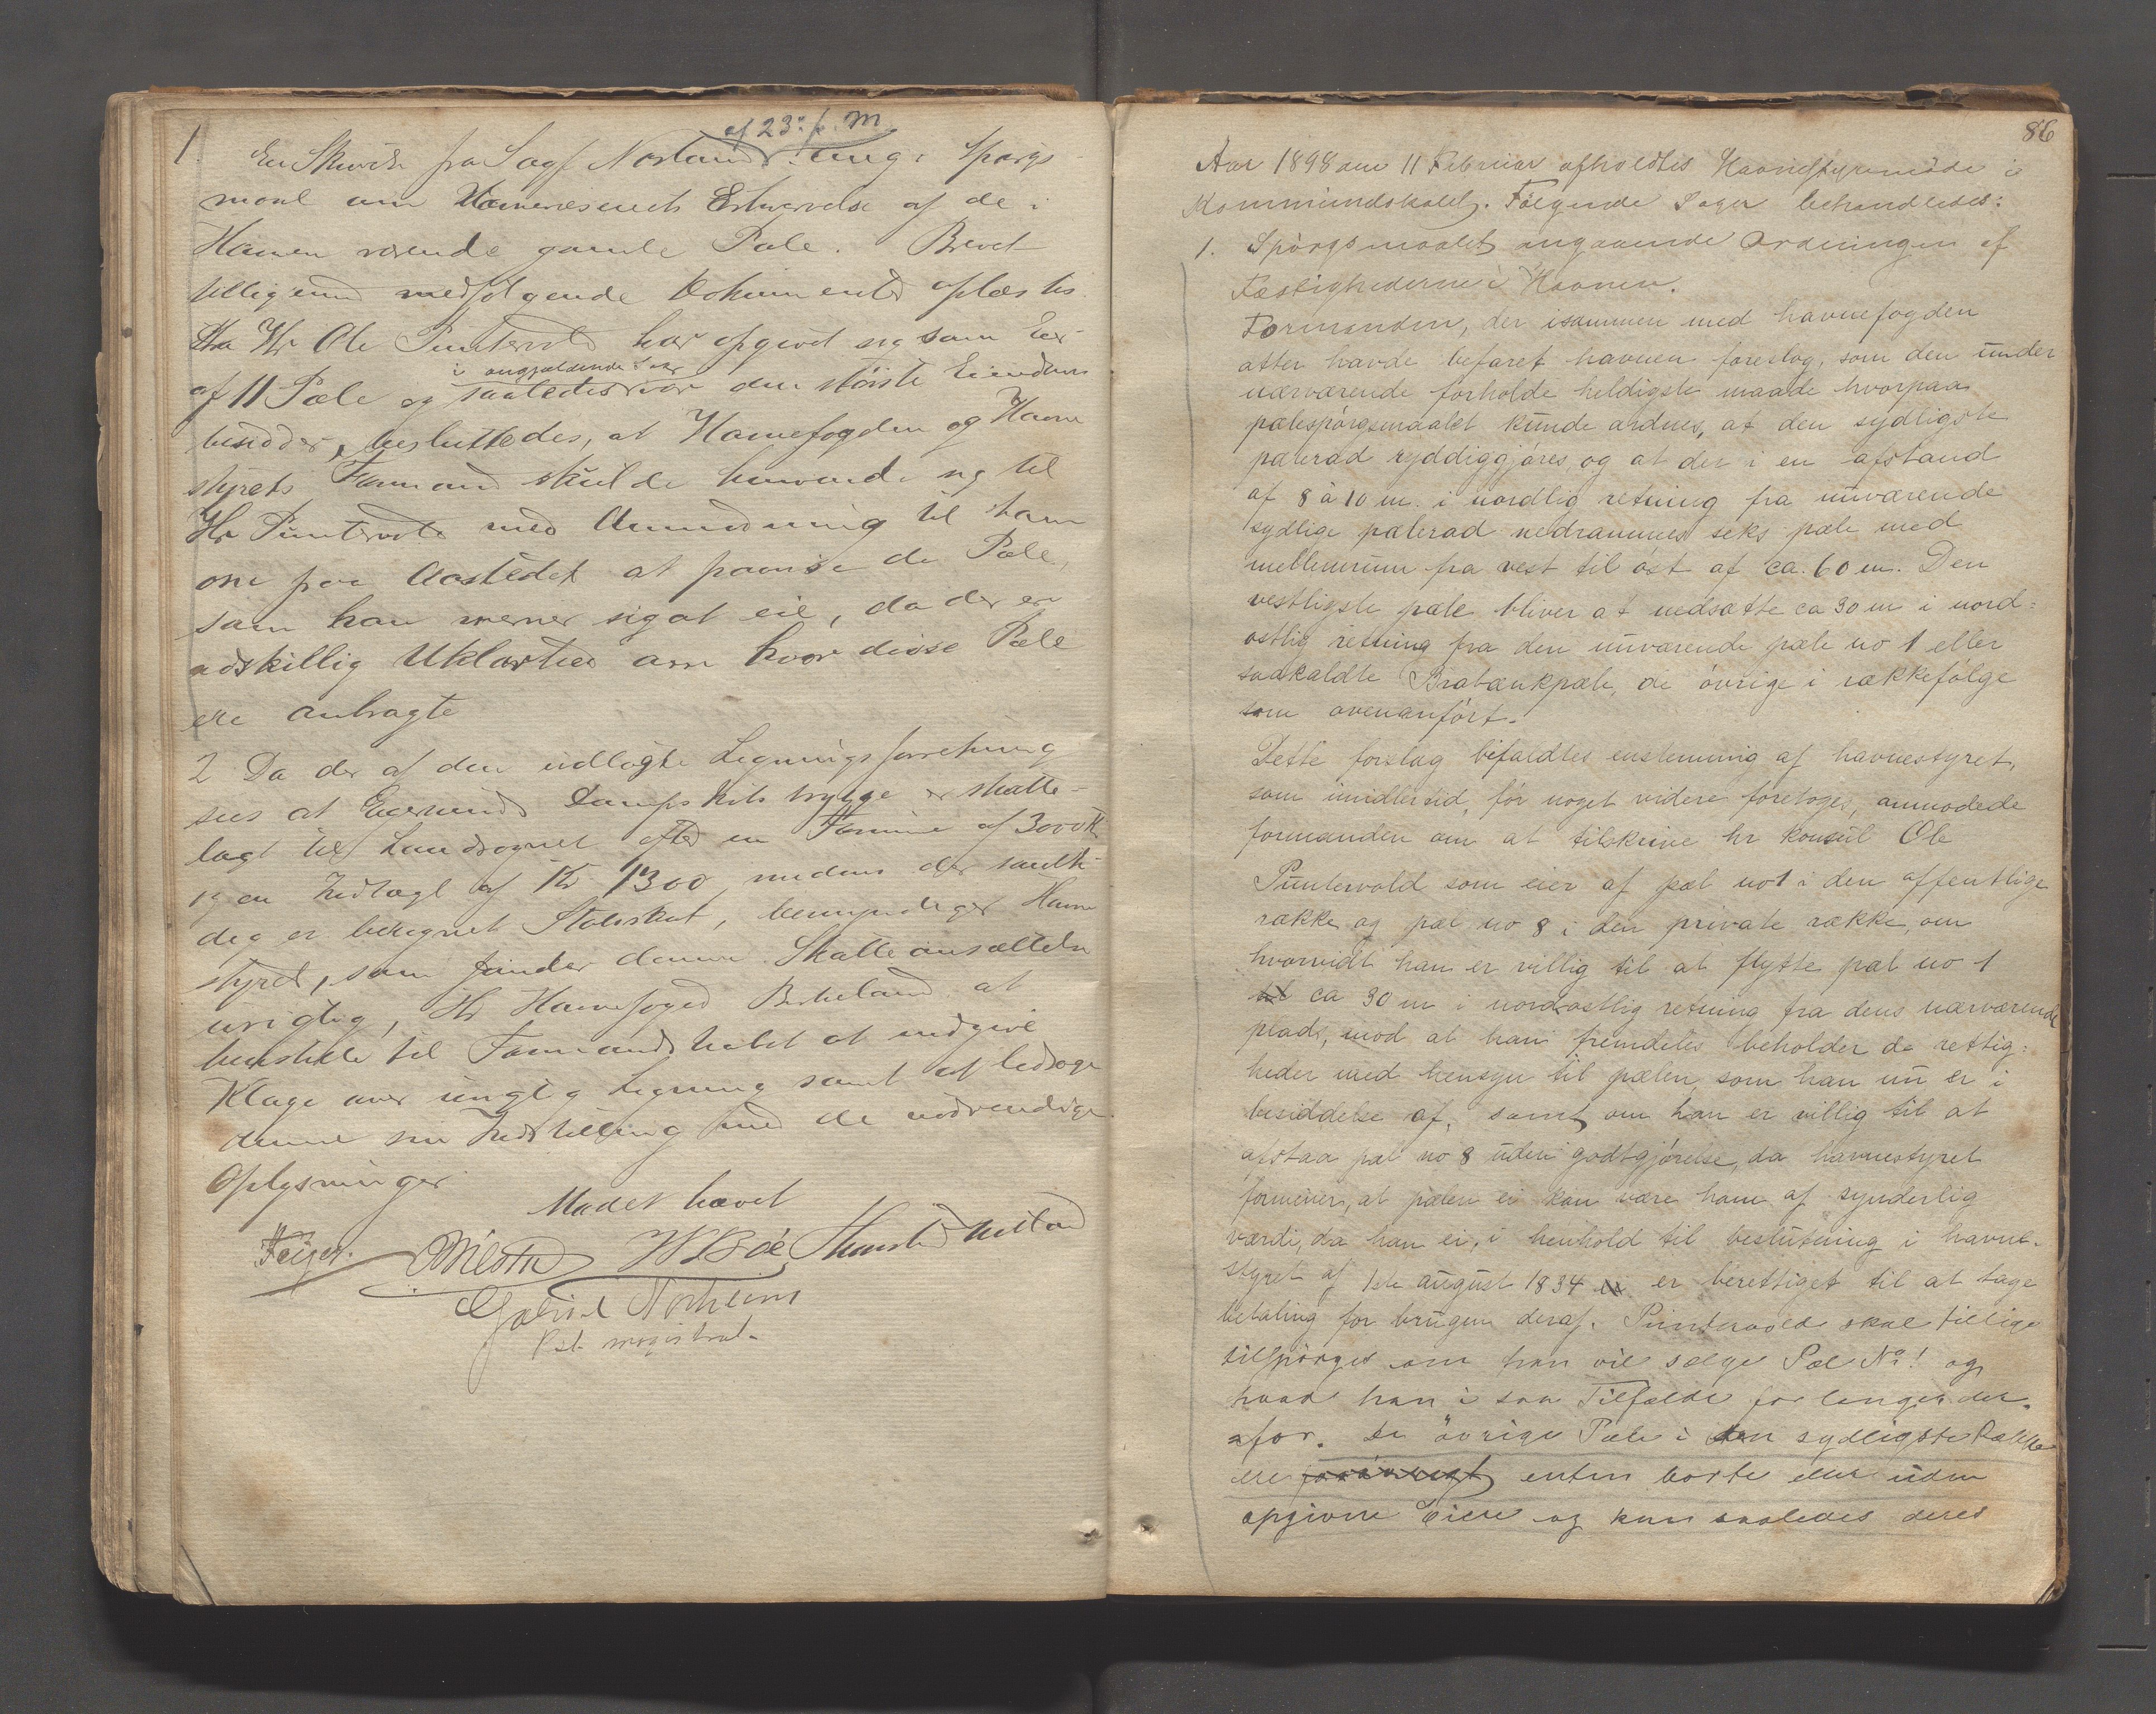 af 23. f. M.
1. En Skrivelse fra Sagf. Norland ang. Spørgs
maal om Havnevesenets Erhvervelse af de i
Havnen værende gamle Pæle. Brevet
tilligemed medfølgende Dokumenter oplæstes.
Da Hr Ole Puntervold har opgivet sig som Eier
i angjældende Sag
af 11 Pæle og saaledes var den største Eiendoms
besidder, besluttedes, at Havnefogden og Havne
styrets Formand skulde henvende sig til
Hr Puntervold med Anmodning til ham
om paa Aastedet at paavise de Pæle,
som han mener sig at eie, da der er
adskillig Uklarhed om hvor disse Pæle
ere anbragte
2 Da der af den udlagte Ligningsforretning
sees at Egersunds Dampskibsbrygge er skatte-
lagt til Landsognet efter en Formue af 3000 Kr
og en Indtægt af Kr 1300, medens der samti-
dig er beregnet Skoleskat, bemyndiger Havne
styret, som finder denne Skatteansættelse
urigtig, Hr Havnefoged Birkeland at
henstille til Formandskabet at indgive
Klage over urigtig Ligning samt at ledsage
denne sin Indstilling med de nødvendige
Oplysninger
Mødet hævet
Feyer. W Boe
Gabriel
Pst. magistrat.
86
Aar 1898 den 11 Februar afholdtes Havnestyremøde i
Kommunelokalet. Følgende Sager behandledes:
1. Spørgsmaalet angaaende Ordningen af
Fæstighederne i Havnen.
Formanden, der isammen med havnefogden
atter havde befaret havnen foreslog, som den under
nærværende forholde heldigste maade hvorpaa
pælespörgsmaalet kunde ordnes, at den sydligste
pælerad ryddiggjöres, og at der i en afstand
af 8 à 10 m. i nordlig retning fra nuværende
sydlige pælerad nedrammes seks pæle med
mellemrum fra vest til öst af ca. 60 m. Den
vestligste pæle bliver at nedsætte ca 30 m i nord=
ostlig retning fra den nuværende pæle no 1 eller
saakaldte Brabænkpæle, de övrige i rækkefölge
som ovenanfört.
Dette forslag bifaldtes enstemmig af havnestyret,
som imidlertid, för noget videre foretoges, anmodede
formanden om at tilskrive hr konsul Ole
Puntervold som eier af pæl no1 i den offentlige
række og pæl no 8 i den private række, om
hvorvidt han er villig til at flytte pæl no 1
til ca 30 m i nordostlig retning fra dens nærværende
plads, mod at han fremdeles beholder de rettig=
heder med hensyn til pælen, som han nu er i
besiddelse af, samt om han er villig til at
afstaa pæl no 8 uden godtgjörelse, da havnestyret
formener, at pælen ei kan være ham af synderlig
værdi, da han ei, i henhold til beslutning i havne-
styret af 1ste august 1834 ei er berettiget til at tage
betaling for brugen deraf. Puntervold skal tillige
tilspörges om han vil sælge Pæl No 1 og
hvad han i saa Tilfælde forlanger der-
for. De övrige Pæle i den sydligste Række
ere forövrigt enten borte eller uden
opgivne Eiere og kan saaledes deres